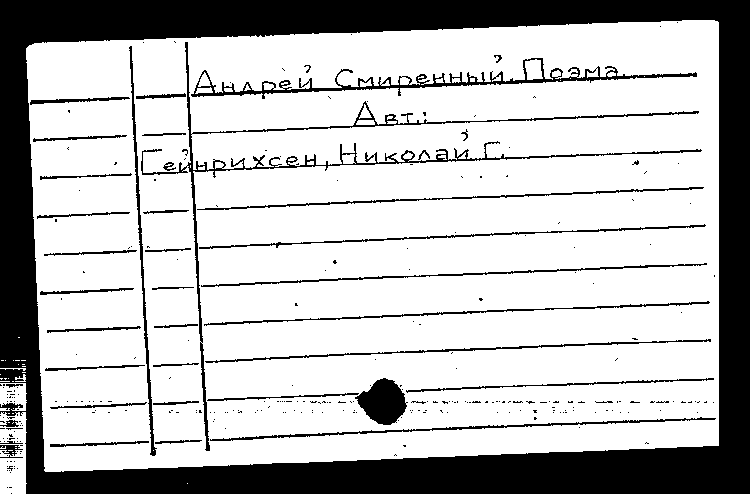 Андрей Смиренный. Поэма.
Авт.:
Гейнрихсен, Николай Г.